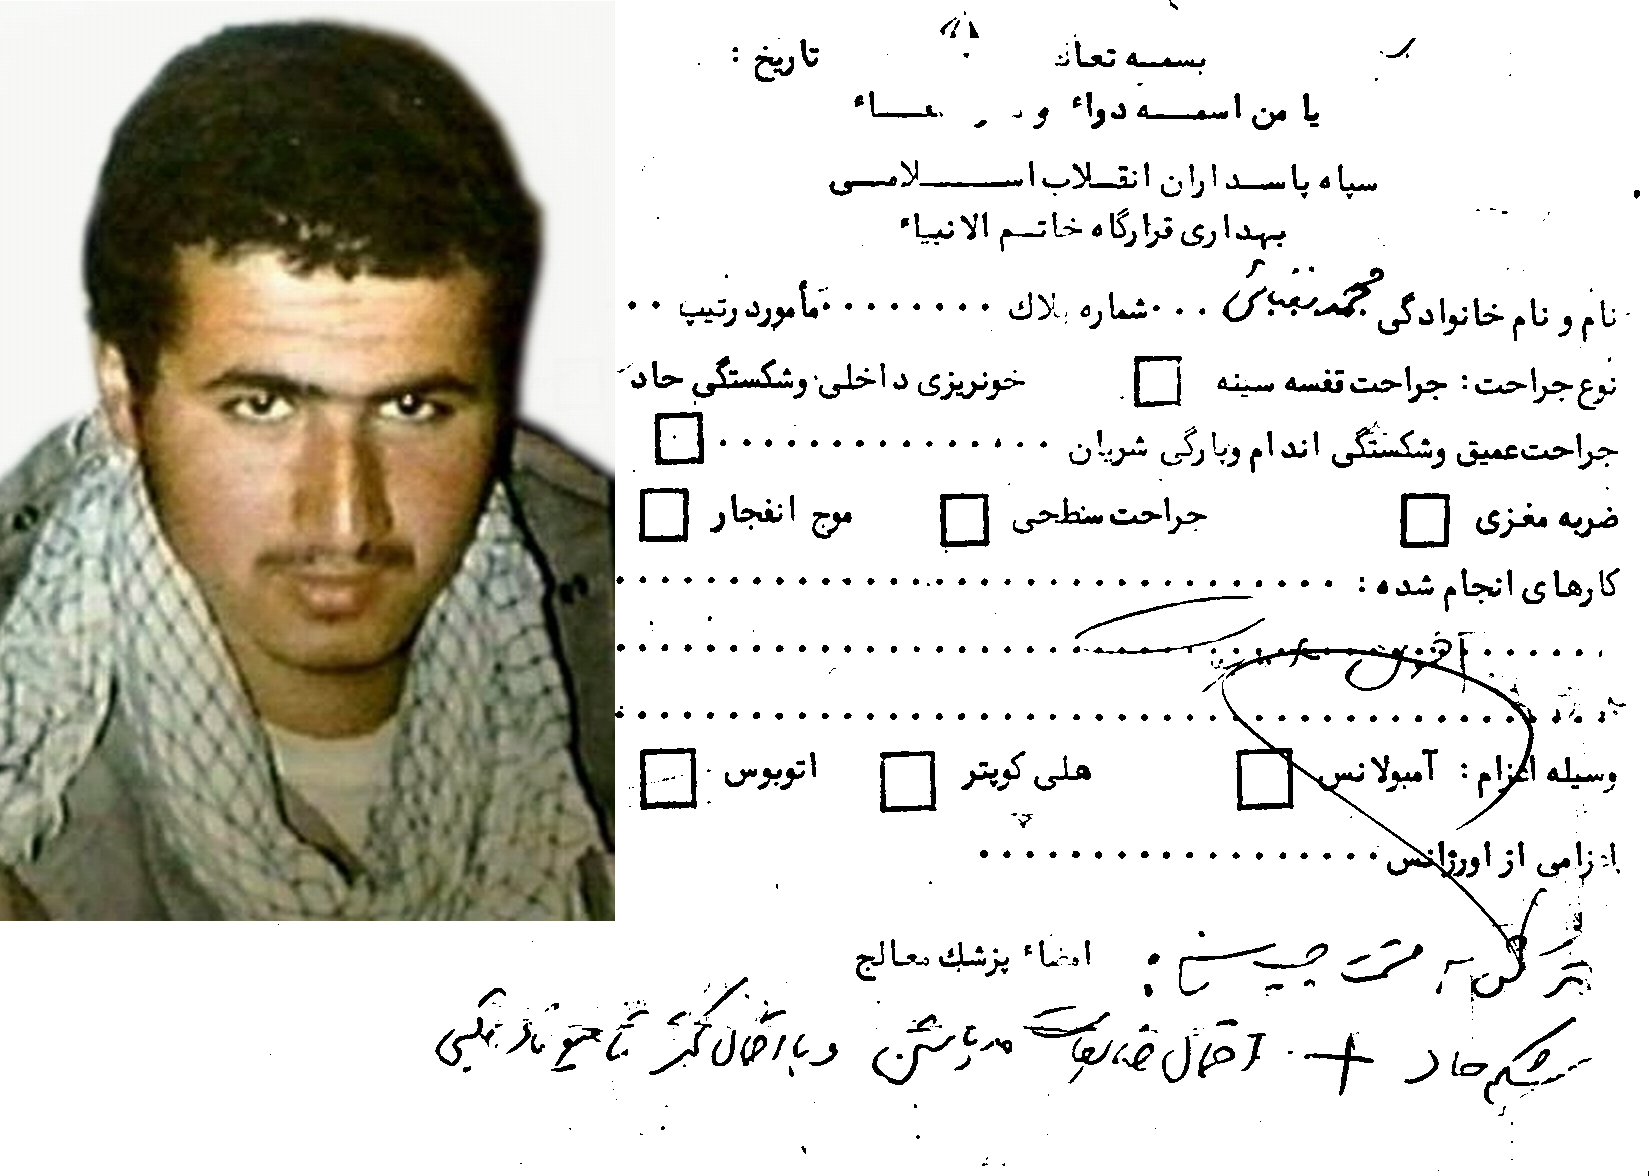 بسمه تعا
تاریخ :
یا من اسمه دواء و
سپاه پاسداران انقلاب اسلامی
بهداری قرارگاه خاتم الانبیاء
نام و نام خانوادگی محمد ... شماره پلاك ........ مأمور در تیپ ..
نوع جراحت : جراحت قفسه سینه □ خونریزی داخلی و شکستگی حاد
جراحت عمیق و شکستگی اندام و پارگی شریان ................ □
ضربه مغزی □ جراحت سطحی □ موج انفجار □
کارهای انجام شده : ................................
وسیله اعزام : آمبولانس □ هلی کوپتر □ اتوبوس □
اعزامی از اورژانس ..................
ترکش به قسمت چپ
امضاء پزشك معالج
شکم حاد + احتمال ضایعات و با احتمال کمتر